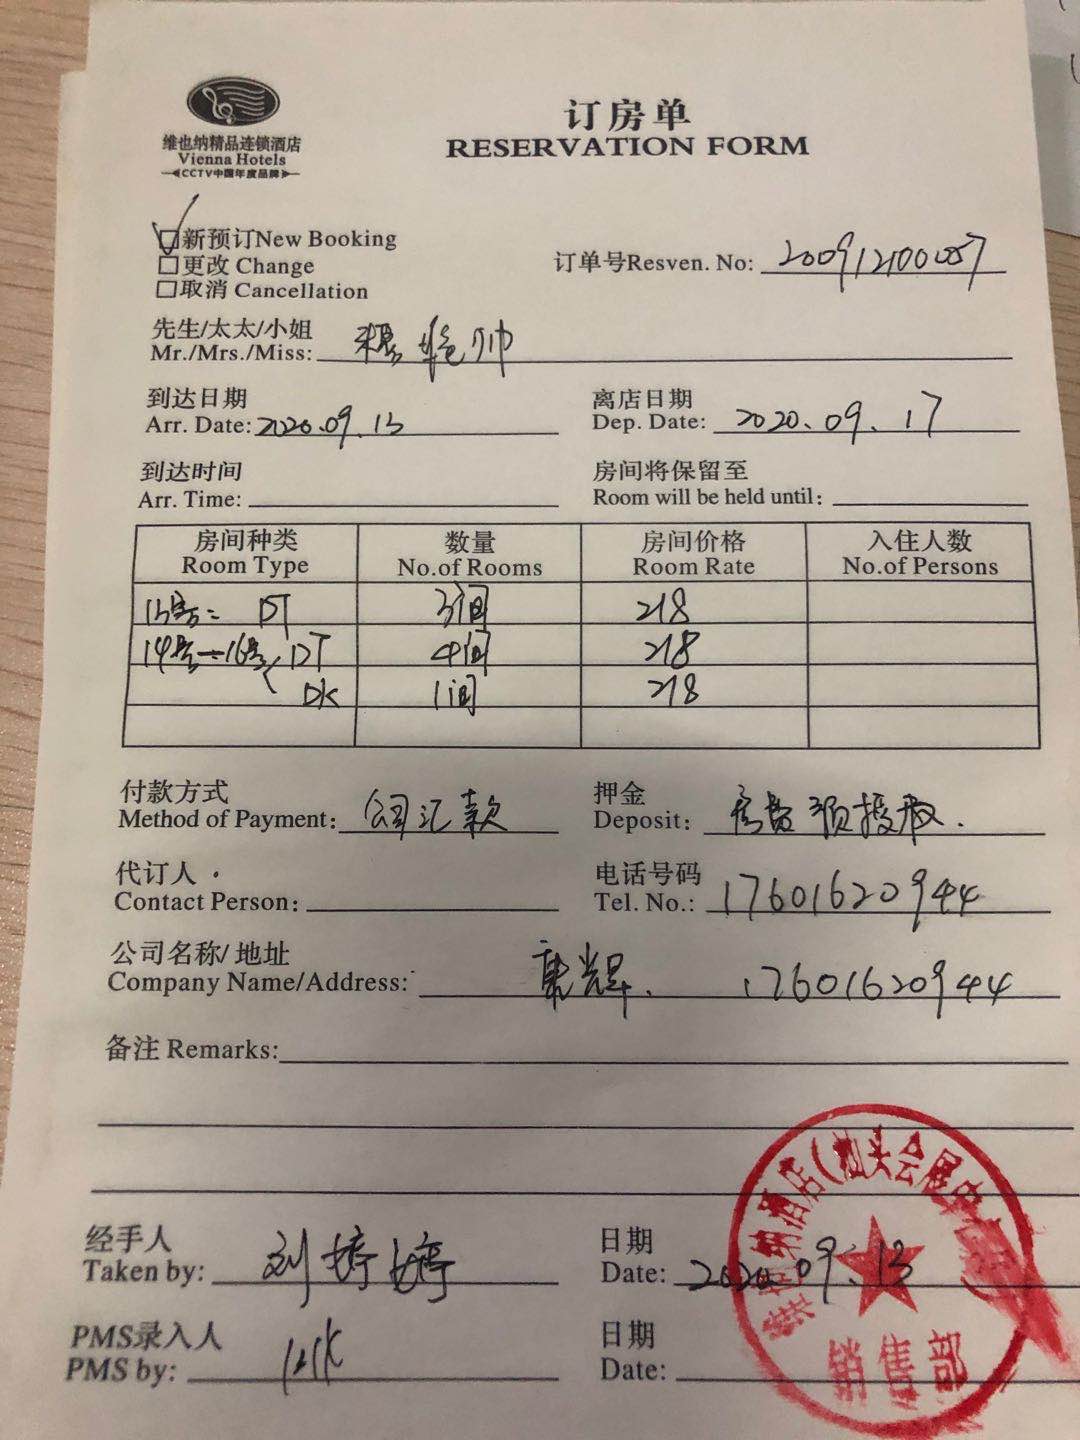 维也纳精品连锁酒店
Vienna Hotels
CCTV中国年度品牌
订房单
RESERVATION FORM
新预订New Booking
更改 Change
取消 Cancellation
订单号Resven. No: 200912100057
先生/太太/小姐
Mr./Mrs./Miss: 帅
到达日期
Arr. Date: 2020.09.13
离店日期
Dep. Date: 2020.09.17
到达时间
Arr. Time:
房间将保留至
Room will be held until:
房间种类 数量 房间价格 入住人数
Room Type No.of Rooms Room Rate No.of Persons
13号: DT 3间 218
14号—16号 DT 4间 218
DK 1间 218
付款方式
Method of Payment: 公司汇款
押金
Deposit: 房费预授权.
代订人
Contact Person:
电话号码
Tel. No.: 17601620944
公司名称/ 地址
Company Name/Address: 康辉. 17601620944
备注 Remarks:
维也纳酒店(汕头会展中心店)
销售部
经手人
Taken by: 刘婷婷
日期
Date: 2020.09.13
PMS录入人
PMS by:
日期
Date: